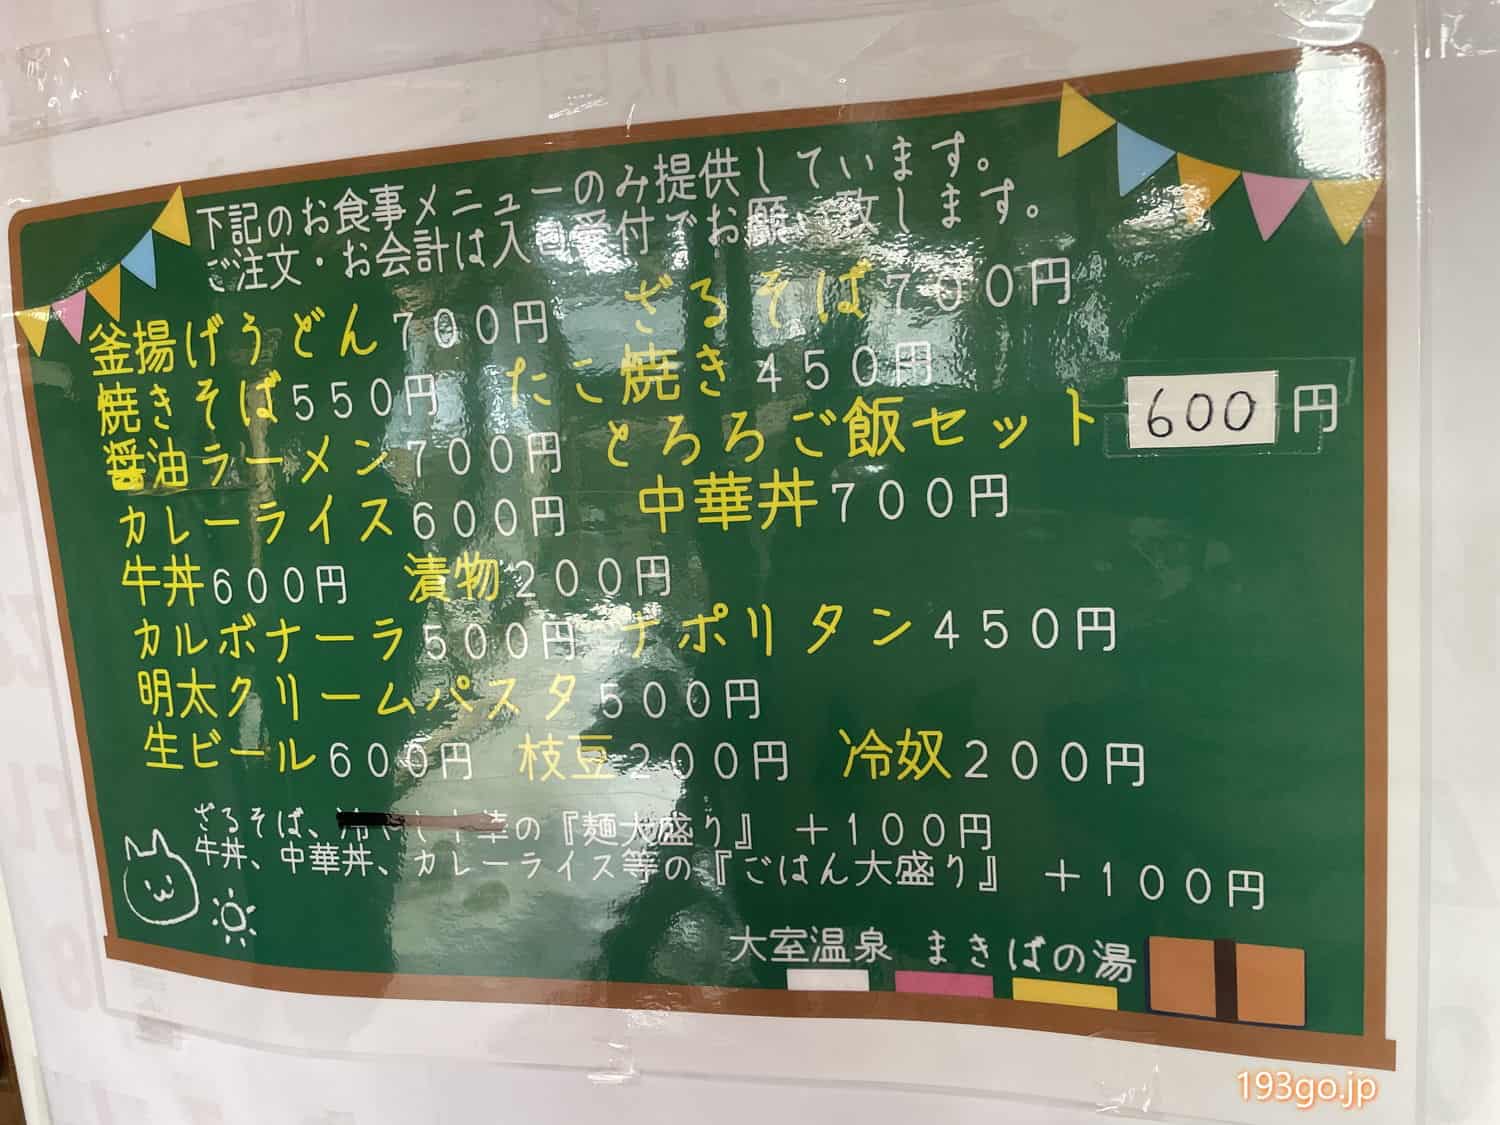 下記のお食事メニューのみ提供しています。
ご注文・お会計は入口受付でお願い致します。
釜揚げうどん700円 ざるそば700円
焼きそば550円 たこ焼き450円
醤油ラーメン700円 とろろご飯セット 600円
カレーライス600円 中華丼700円
牛丼600円 漬物200円
カルボナーラ500円 ナポリタン450円
明太クリームパスタ500円
生ビール600円 枝豆200円 冷奴200円
ざるそば、の『麺大盛り』 +100円
牛丼、中華丼、カレーライス等の『ごはん大盛り』 +100円
大室温泉 まきばの湯
193go.jp